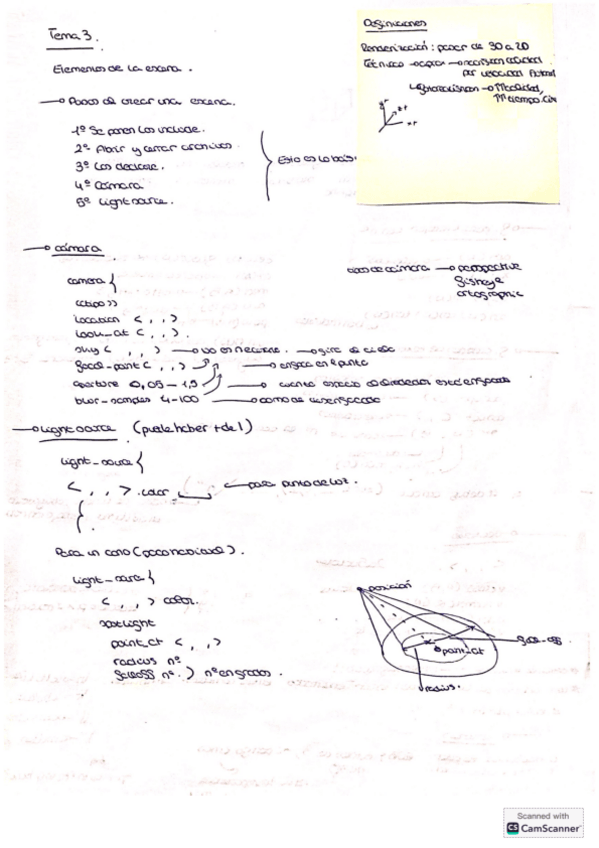 Tema 3.
Elementos de la escena.
Pasos de crear una escena.
1º Se ponen los include.
2º Abrir y cerrar archivos.
3º Los declare.
4º Cámara
5º Light source.
Esto es lo bás.
Definiciones
Renderización: pasar de 3D a 2D
Técnicas
cámara
camera {
<<tipo>>
location < , , >
look_at < , , >
sky < , , > no es necesario. giro de
focal-point < , , > en el punto
aperture 0,05 - 1,5 cuanto espacio de alrededor está enfocado
blur-samples 4-100 como de desenfocado
tipos de cámara perspective
fisheye
ortographic
Light source (puede haber + de 1)
light_source {
< , , > color para punto de luz.
}
Para un cono (foco
light_source {
< , , > color
spotlight
point_at < , , >
radius nº
falloff nº nº en grados.
posición
point_at
radius.
Scanned with
CS CamScanner